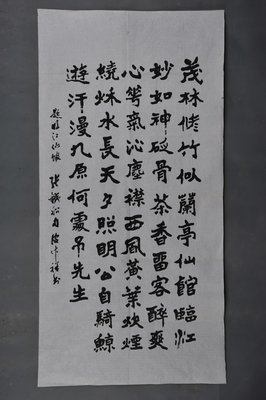 茂林修竹似蘭亭仙館臨江
妙如神砭骨茶香畱客醉爽
心氣沁塵襟西風黃葉炊煙
繞秋水長天夕照明公自騎鯨
遊汗漫九原何處吊先生
題臨江仙館